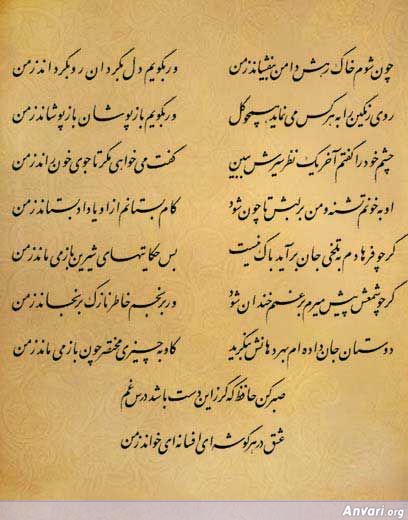 چون شوم خاک رهش دامن بیفشاند ز من ور بگویم دل بگردان رو بگرداند ز من
روی رنگین را به هر کس می نماید همچو گل ور بگویم باز پوشان باز پوشاند ز من
چشم خود را گفتم آخر یک نظر سیرش ببین گفت می خواهی مگر تا جوی خون راند ز من
او به خونم تشنه و من بر لبش تا چون شود کام بستانم از او یا داد بستاند ز من
گر چو فرهادم به تلخی جان برآید باک نیست بس حکایتهای شیرین باز می ماند ز من
گر چو شمعش پیش میرم بر غمم خندان شود ور برنجم خاطر نازک برنجاند ز من
دوستان جان داده ام بهر دهانش بنگرید کاو به چیزی مختصر چون باز می ماند ز من
صبر کن حافظ که گر زاین دست باشد درس غم
عشق در هر گوشه ای افسانه ای خواند ز من
Anvari.org